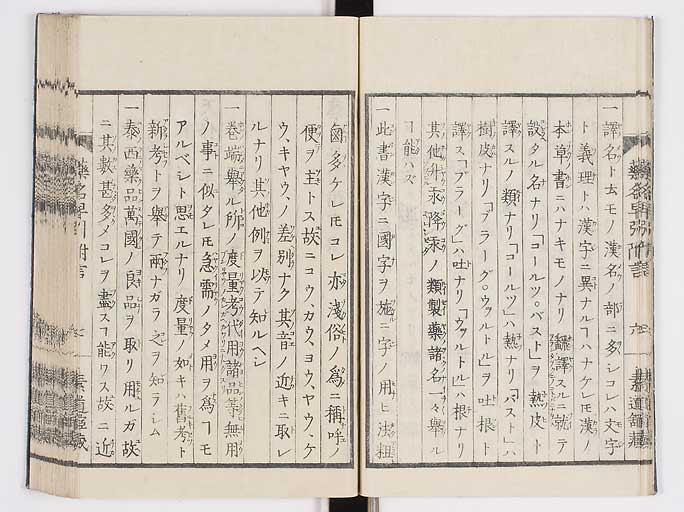 一譯名ト云モノ漢名ノ部ニ多シコレハ文字
ト義理トハ漢字ニ異ナルヿハナケレ𪜈漢ノ
本草書ニハナキモノナリ飜譯スルニ就テ
設タル名ナリ「コールツ。バスト」ヲ熱皮ト
譯スルノ類ナリ「コールツ」ハ熱ナリ「バスト」ハ
樹皮ナリ「ブラーグ。ウヲルトル」ヲ吐根ト
譯ス「ブラーグ」ハ吐ナリ「ウヲルトル」ハ根ナリ
其他升汞降汞ノ類製藥諸名一々舉ル
ヿ能ハズ
一此書漢字ニ國字ヲ施ニ字ノ用ヒ法粗
鹵多ケレ𪜈コレ亦淺俗ノ爲ニ稱呼ノ
便ヲ主トス故ニコウ、カウ、ヨウ、ヤウ、ケ
ウ、キヤウ、ノ差別ナク其音ノ近キニ取レ
ルナリ其他例ヲ以テ知ルヘシ
一卷端舉ル所ノ度量考代用諸品等無用
ノ事ニ似タレ𪜈急需ノタメ用ヲ爲ヿモ
アルベシト思エルナリ度量ノ如キハ舊考ト
新考トヲ舉テ兩ナガラ之ヲ知ラシム
一泰西藥品萬國ノ良品ヲ取リ用ルガ故
ニ其數甚多メコレヲ盡スヿ能ワス故ニ近